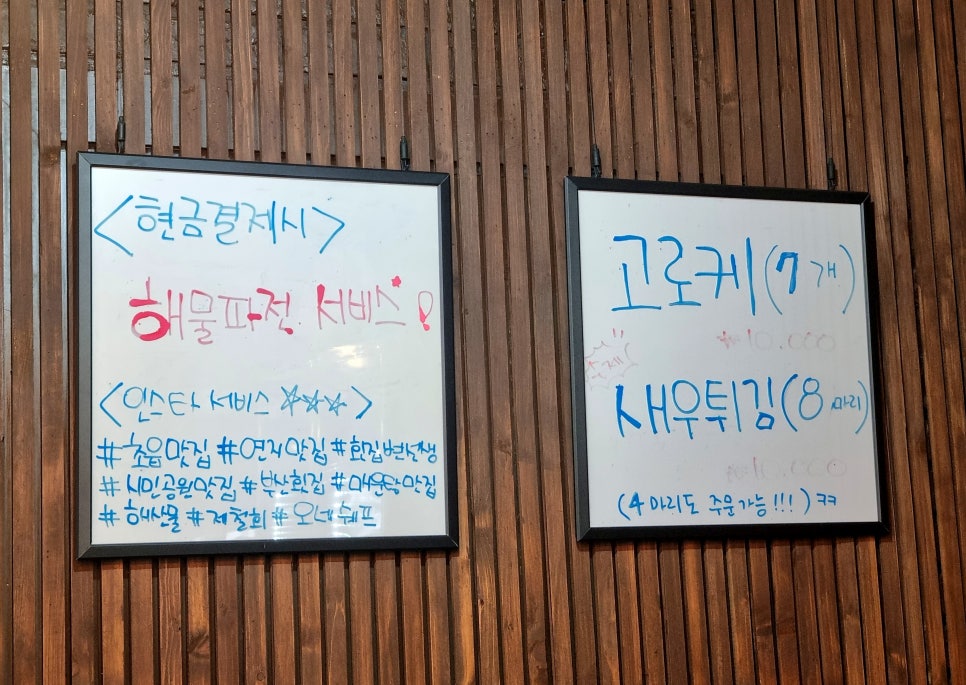 <현금결제시>
해물파전 서비스!
<인스타 서비스 ☆☆☆>
#초읍맛집 #연지맛집 #횟집변선생
#시민공원맛집 #부산횟집 #매운탕맛집
#해산물 #제철회 #오네쉐프
고로케(7개)
₩10.000
수제
새우튀김(8마리)
₩10.000
(4마리도 주문가능!!!) ㅋㅋ